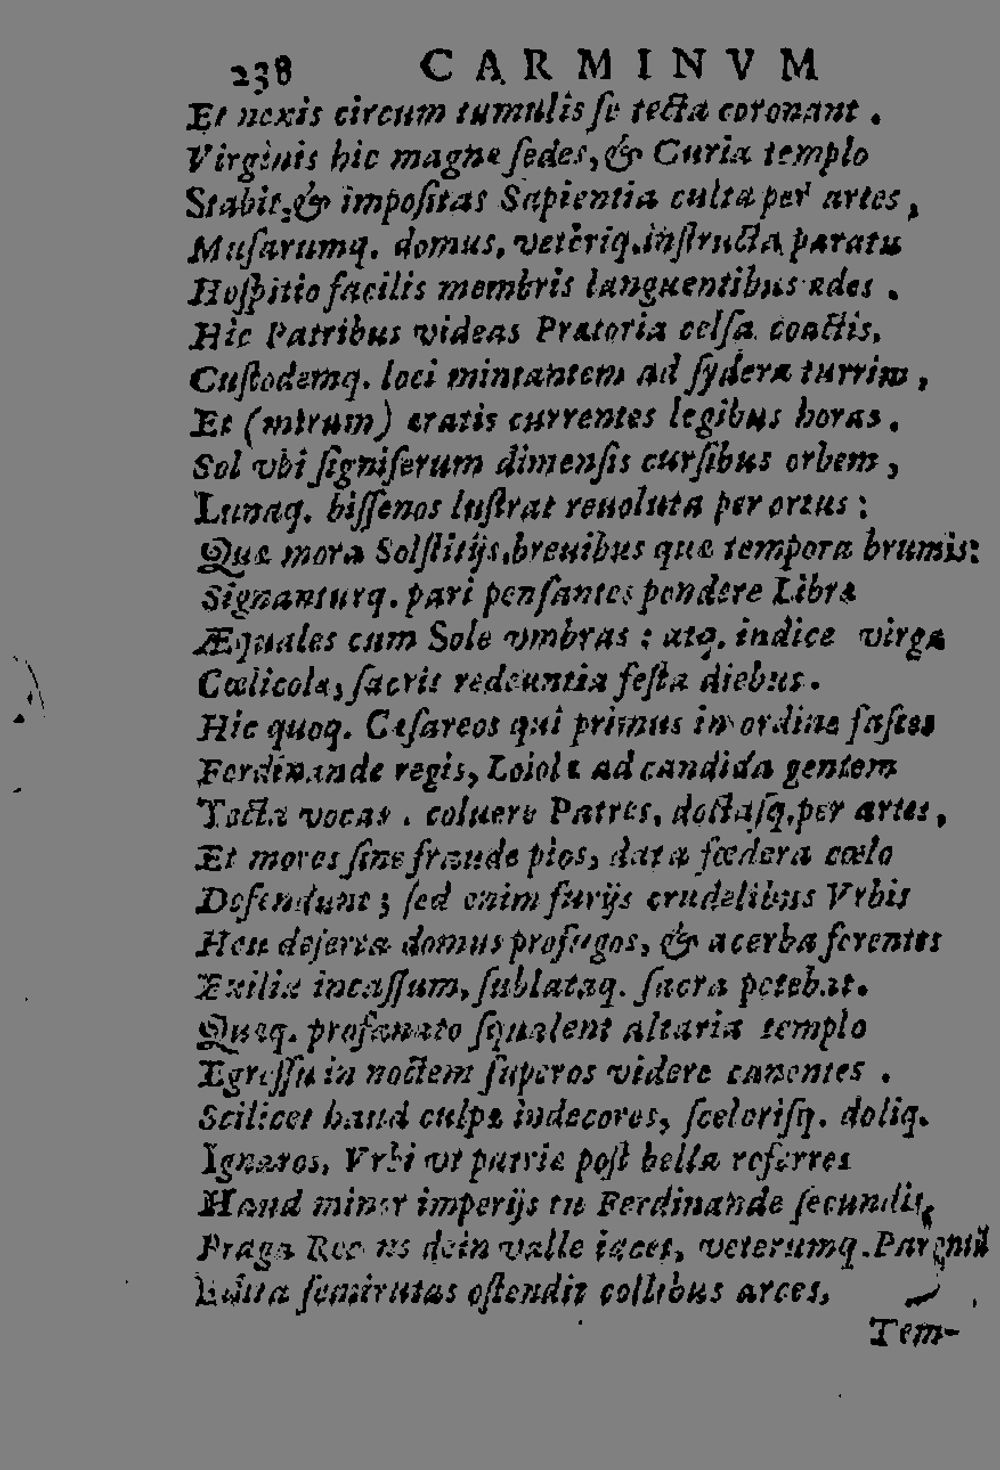 238 CARMINVM
Et nexis circum tumulis se tecta coronant.
Virginis hic magnæ sedes, & Curia templo
Stabit, & impositas Sapientia culta per artes,
Musarumq. domus, veteriq. instructa paratu
Hospitio facilis membris languentibus ædes.
Hic Patribus videas Prætoria celsa coactis,
Custodemq. loci mintantem ad sydera turrim,
Et (mirum) æratis currentes legibus horas.
Sol vbi signiferum dimensis cursibus orbem,
Lunaq. bissenos lustrat reuoluta per ortus:
Quæ mora Solstitijs, breuibus quæ tempora brumis:
Signanturq. pari pensantes pondere Libra
Æquales cum Sole vmbras: atq. indice virga
Cœlicolæ, sacris redeuntia festa diebus.
Hic quoq. Cæsareos qui primus in ordine fastes
Ferdinande regis, Loiolæ ad candida gentem
Tecta vocas. coluere Patres, doctasq. per artes,
Et mores sine fraude pios, data fœdera cœlo
Defendunt; sed enim furijs crudelibus Vrbis
Heu deserta domus profugos, & acerba ferentes
Exilia incassum, sublataq. sacra petebat.
Quæq. profanato squalent altaria templo
Egressu in noctem superos videre canentes.
Scilicet haud culpæ indecores, scelerisq. doliq.
Ignaros, Vrbi vt patriæ post bella referres
Haud minor imperijs tu Ferdinande secundis,
Praga dein valle iacet, veterumq. Parentũ
Edita semirutas ostendit collibus arces,
Tem-